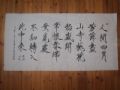 人間四月
芳菲盡
山寺桃花
始盛開
長恨春歸
無覓處
不知轉入
此中來